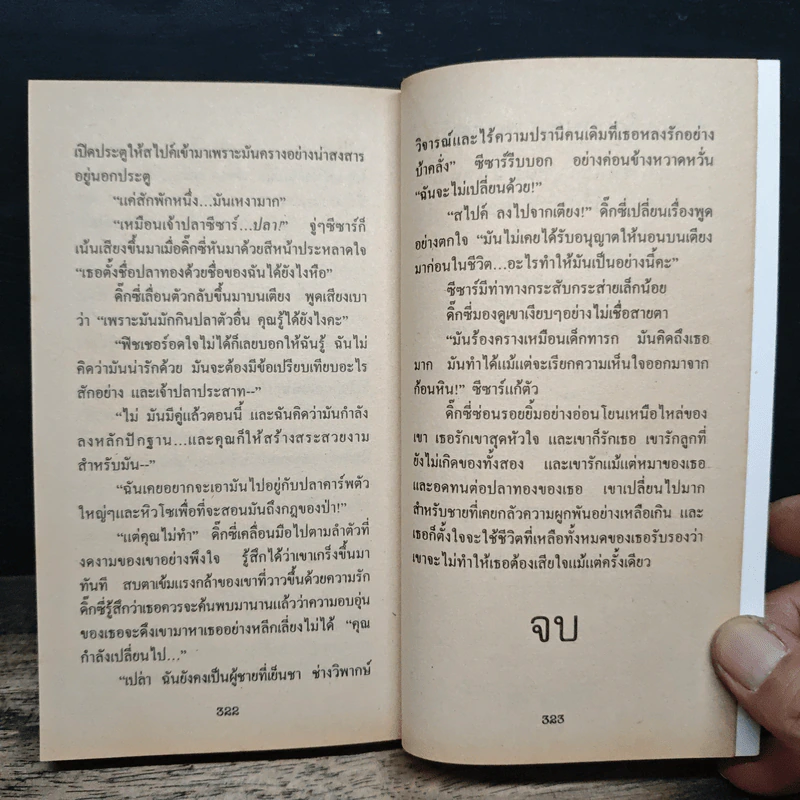 เปิดประตูให้สไปค์เข้ามาเพราะมันครางอย่างน่าสงสาร
อยู่นอกประตู
“แค่สักพักหนึ่ง...มันเหงามาก”
“เหมือนเจ้าปลาซีซาร์...ปลา!” จู่ๆซีซาร์ก็
เน้นเสียงขึ้นมาเมื่อดิ๊กซี่หันมาด้วยสีหน้าประหลาดใจ
“เธอตั้งชื่อปลาทองด้วยชื่อของฉันได้ยังไงหือ”
ดิ๊กซี่เลื่อนตัวกลับขึ้นมาบนเตียง พูดเสียงเบา
ว่า “เพราะมันมักกินปลาตัวอื่น คุณรู้ได้ยังไงคะ”
“ฟิชเชอร์อดใจไม่ได้ก็เลยบอกให้ฉันรู้ ฉันไม่
คิดว่ามันน่ารักด้วย มันจะต้องมีข้อเปรียบเทียบอะไร
สักอย่าง และเจ้าปลาประสาท--”
“ไม่ มันมีคู่แล้วตอนนี้ และฉันคิดว่ามันกำลัง
ลงหลักปักฐาน...และคุณก็ให้สร้างสระสวยงาม
สำหรับมัน--”
“ฉันเคยอยากจะเอามันไปอยู่กับปลาคาร์พตัว
ใหญ่ๆและหิวโซเพื่อที่จะสอนมันถึงกฎของป่า!”
“แต่คุณไม่ทำ” ดิ๊กซี่เคลื่อนมือไปตามลำตัวที่
งดงามของเขาอย่างพึงใจ รู้สึกได้ว่าเขาเกร็งขึ้นมา
ทันที สบตาเข้มแรงกล้าของเขาที่วาวขึ้นด้วยความรัก
ดิ๊กซี่รู้สึกว่าเธอควรจะค้นพบมานานแล้วว่าความอบอุ่น
ของเธอจะดึงเขามาหาเธออย่างหลีกเลี่ยงไม่ได้ “คุณ
กำลังเปลี่ยนไป...”
“เปล่า ฉันยังคงเป็นผู้ชายที่เย็นชา ช่างวิพากษ์
322
วิจารณ์และไร้ความปรานีคนเดิมที่เธอหลงรักอย่าง
บ้าคลั่ง” ซีซาร์รีบบอก อย่างค่อนข้างหวาดหวั่น
“ฉันจะไม่เปลี่ยนด้วย!”
“สไปค์ ลงไปจากเตียง!” ดิ๊กซี่เปลี่ยนเรื่องพูด
อย่างตกใจ “มันไม่เคยได้รับอนุญาตให้นอนบนเตียง
มาก่อนในชีวิต...อะไรทำให้มันเป็นอย่างนี้คะ”
ซีซาร์มีท่าทางกระสับกระส่ายเล็กน้อย
ดิ๊กซี่มองดูเขาเงียบๆอย่างไม่เชื่อสายตา
“มันร้องครางเหมือนเด็กทารก มันคิดถึงเธอ
มาก มันทำได้แม้แต่จะเรียกความเห็นใจออกมาจาก
ก้อนหิน!” ซีซาร์แก้ตัว
ดิ๊กซี่ซ่อนรอยยิ้มอย่างอ่อนโยนเหนือไหล่ของ
เขา เธอรักเขาสุดหัวใจ และเขาก็รักเธอ เขารักลูกที่
ยังไม่เกิดของทั้งสอง และเขารักแม้แต่หมาของเธอ
และอดทนต่อปลาทองของเธอ เขาเปลี่ยนไปมาก
สำหรับชายที่เคยกลัวความผูกพันอย่างเหลือเกิน และ
เธอก็ตั้งใจจะใช้ชีวิตที่เหลือทั้งหมดของเธอรับรองว่า
เขาจะไม่ทำให้เธอต้องเสียใจแม้แต่ครั้งเดียว
จบ
323